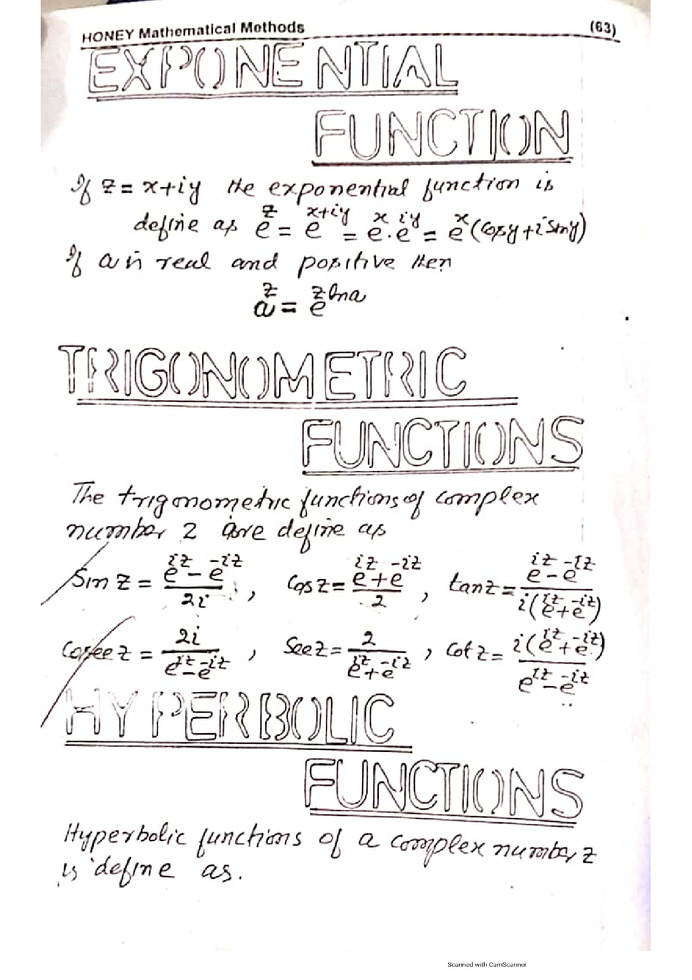 HONEY Mathematical Methods (63)
EXPONENTIAL
FUNCTION
If z = x+iy the exponential function is
define as e^z = e^{x+iy} = e^x . e^{iy} = e^x (cosy + i siny)
If a is real and positive then
a^z = e^{z ln a}
TRIGONOMETRIC
FUNCTIONS
The trigonometric functions of complex
number z are define as
Sin z = (e^{iz} - e^{-iz})/2i , Cos z = (e^{iz} + e^{-iz})/2 , tan z = (e^{iz} - e^{-iz})/i(e^{iz} + e^{-iz})
Cosec z = 2i/(e^{iz} - e^{-iz}) , Sec z = 2/(e^{iz} + e^{-iz}) , Cot z = i(e^{iz} + e^{-iz})/(e^{iz} - e^{-iz})
HYPERBOLIC
FUNCTIONS
Hyperbolic functions of a complex number z
is define as.
Scanned with CamScanner